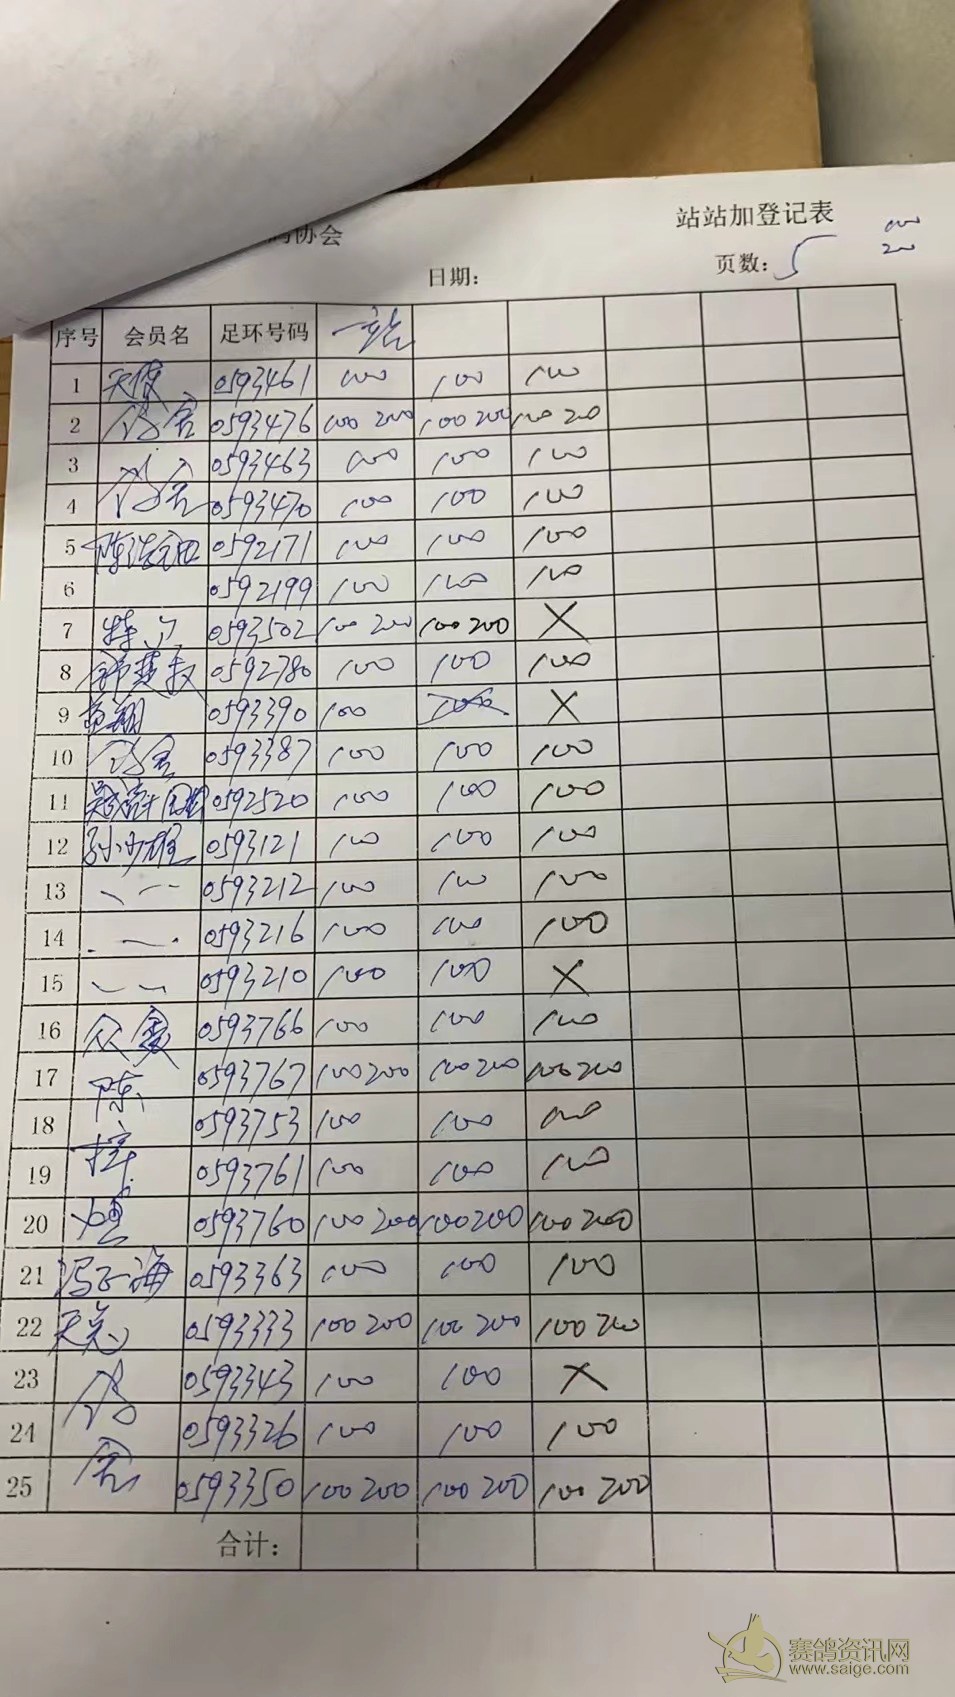 协会
站站加登记表
100
200
日期:
页数: 5
序号 会员名 足环号码 一站
1 天使 0593461 100 100 100
2 鸽舍 0593476 100 200 100 200 100 200
3 鸽 0593463 100 100 100
4 舍 0593470 100 100 100
5 0592171 100 100 100
6 0592199 100 100 100
7 0593502 100 200 100 200 X
8 0592780 100 100 100
9 翔 0593390 100 100 X
10 鸽舍 0593387 100 100 100
11 0592520 100 100 100
12 孙少雄 0593121 100 100 100
13 0593212 100 100 100
14 0593216 100 100 100
15 0593210 100 100 X
16 众赛 0593766 100 100 100
17 陈 0593767 100 200 100 200 100 200
18 0593753 100 100 100
19 0593761 100 100 100
20 0593760 100 200 100 200 100 200
21 冯子海 0593363 100 100 100
22 0593333 100 200 100 200 100 200
23 鸽 0593343 100 100 X
24 0593326 100 100 100
25 舍 0593350 100 200 100 200 100 200
合计:
赛鸽资讯网
www.saige.com